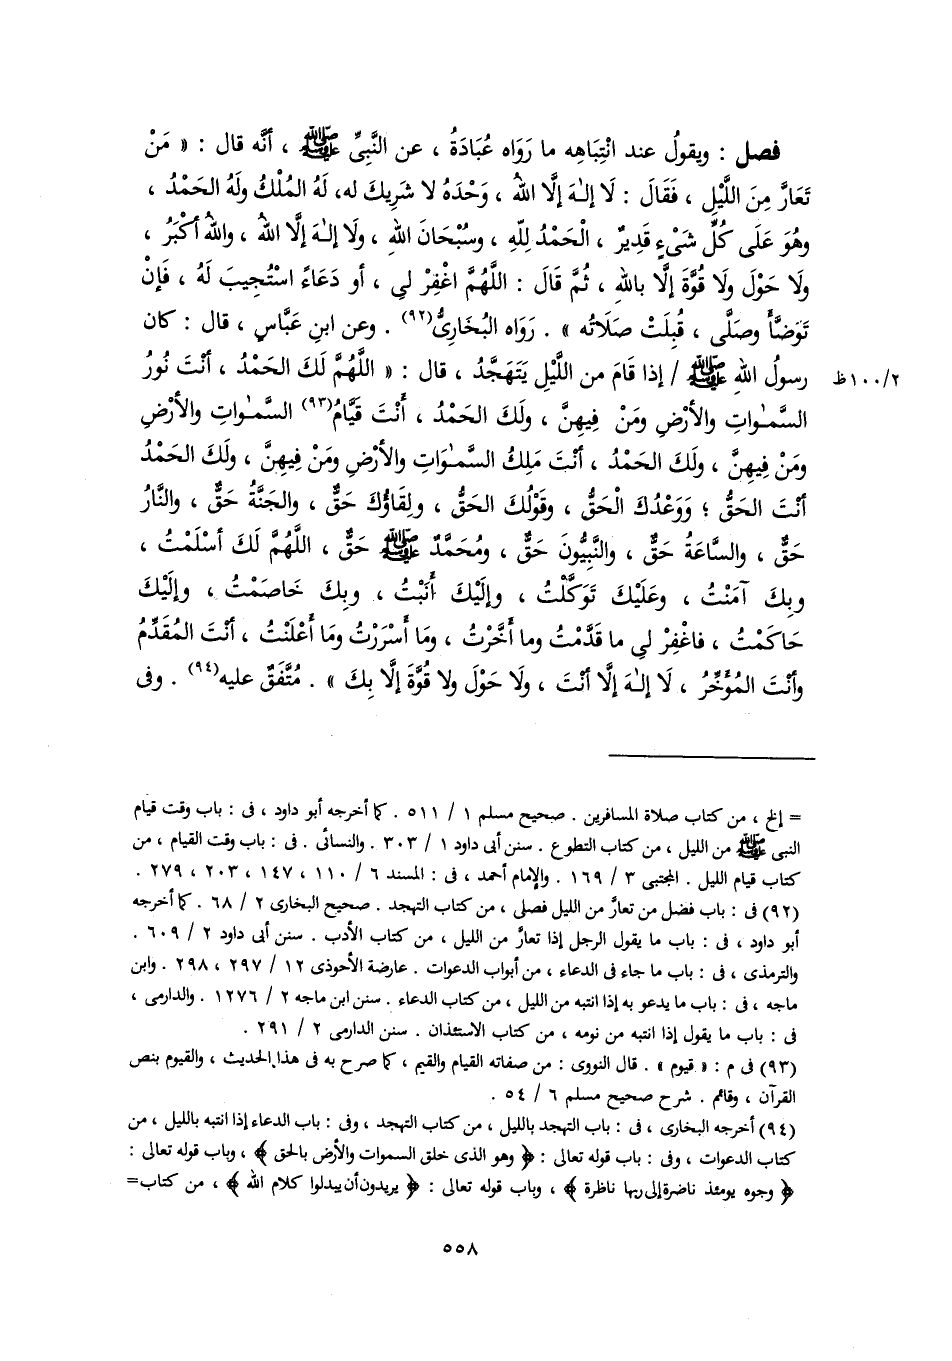 فصل : ويقولُ عند انْتِباهِه ما رَوَاه عُبَادَةُ ، عن النَّبِيِّ ﷺ ، أنَّه قال : « مَنْ
تَعَارَّ مِنَ اللَّيْلِ ، فَقَالَ : لَا إلٰهَ إلَّا اللهُ ، وَحْدَهُ لا شَرِيكَ له، لَهُ المُلْكُ ولَهُ الحَمْدُ ،
وهُوَ عَلَى كُلِّ شَىْءٍ قَدِيرٌ ، الْحَمْدُ لِلّهِ ، وسُبْحَانَ اللهِ ، ولا إلٰهَ إلَّا اللهُ ، واللهُ أكْبَرُ ،
ولَا حَوْلَ ولَا قُوَّةَ إلَّا باللهِ ، ثُمَّ قَالَ : اللَّهُمَّ اغْفِرْ لى ، أو دَعَا اسْتُجِيبَ لَهُ ، فَإنْ
تَوَضَّأَ وصَلَّى ، قُبِلَتْ صَلَاتُه » . رَوَاه البُخَارِىُّ(٩٢) . وعن ابنِ عَبَّاسٍ ، قال : كان
رسولُ اللهِ ﷺ / إذا قَامَ من اللَّيْلِ يَتَهَجَّدُ ، قال : « اللَّهُمَّ لَكَ الحَمْدُ ، أنْتَ نُورُ
٢/١٠٠ظ
السَّمٰواتِ والأرْضِ ومَنْ فِيهِنَّ ، ولَكَ الحَمْدُ ، أَنْتَ قَيَّامُ(٩٣) السَّمٰواتِ والأرْضِ
ومَنْ فِيهِنَّ ، ولَكَ الحَمْدُ ، أنْتَ مَلِكُ السَّمٰوَاتِ والأرْضِ ومَنْ فِيهِنَّ ، ولَكَ الحَمْدُ
أنْتَ الحَقُّ ؛ وَوَعْدُكَ الْحَقُّ ، وقَوْلُكَ الحَقُّ ، ولِقَاؤُكَ حَقٌّ ، والجَنَّةُ حَقٌّ ، والنَّارُ
حَقٌّ ، والسَّاعَةُ حَقٌّ ، والنَّبِيُّونَ حَقٌّ ، ومُحَمَّدٌ ﷺ حَقٌّ ، اللَّهُمَّ لَكَ أسْلَمْتُ ،
وبِكَ آمَنْتُ ، وعَلَيْكَ تَوَكَّلْتُ ، وإلَيْكَ أَنَبْتُ ، وبِكَ خَاصَمْتُ ، وإلَيْكَ
حَاكَمْتُ ، فاغْفِرْ لى ما قَدَّمْتُ وما أخَّرْتُ ، ومَا أسْرَرْتُ ومَا أعْلَنْتُ ، أنْتَ المُقَدِّمُ
وأنْتَ المُؤَخِّرُ ، لَا إلٰهَ إلَّا أنْتَ ، ولَا حَوْلَ ولا قُوَّةَ إلَّا بِكَ » . مُتَّفَقٌ عليه(٩٤) . وفى
= إلخ ، من كتاب صلاة المسافرين . صحيح مسلم ١ / ٥١١ . كما أخرجه أبو داود ، فى : باب وقت قيام
النبى ﷺ من الليل ، من كتاب التطوع . سنن أبى داود ١ / ٣٠٣ . والنسائى . فى : باب وقت القيام ، من
كتاب قيام الليل . المجتبى ٣ / ١٦٩ . والإمام أحمد ، فى : المسند ٦ / ١١٠ ، ١٤٧ ، ٢٠٣ ، ٢٧٩ .
(٩٢) فى : باب فضل من تعارَّ من الليل فصلى ، من كتاب التهجد . صحيح البخارى ٢ / ٦٨ . كما أخرجه
أبو داود ، فى : باب ما يقول الرجل إذا تعارَّ من الليل ، من كتاب الأدب . سنن أبى داود ٢ / ٦٠٩ .
والترمذى ، فى : باب ما جاء فى الدعاء ، من أبواب الدعوات . عارضة الأحوذى ١٢ / ٢٩٧ ، ٢٩٨ . وابن
ماجه ، فى : باب ما يدعو به إذا انتبه من الليل ، من كتاب الدعاء . سنن ابن ماجه ٢ / ١٢٧٦ . والدارمى ،
فى : باب ما يقول إذا انتبه من نومه ، من كتاب الاستئذان . سنن الدارمى ٢ / ٢٩١ .
(٩٣) فى م : « قيوم » . قال النووى : من صفاته القيام والقيم ، كما صرح به فى هذا الحديث ، والقيوم بنص
القرآن ، وقائم . شرح صحيح مسلم ٦ / ٥٤ .
(٩٤) أخرجه البخارى ، فى : باب التهجد بالليل ، من كتاب التهجد ، وفى : باب الدعاء إذا انتبه بالليل ، من
كتاب الدعوات ، وفى : باب قوله تعالى : ﴿ وهو الذى خلق السموات والأرض بالحق ﴾ ، وباب قوله تعالى :
﴿ وجوه يومئذ ناضرة إلى ربها ناظرة ﴾ ، وباب قوله تعالى : ﴿ يريدون أن يبدلوا كلام الله ﴾ ، من كتاب =
٥٥٨